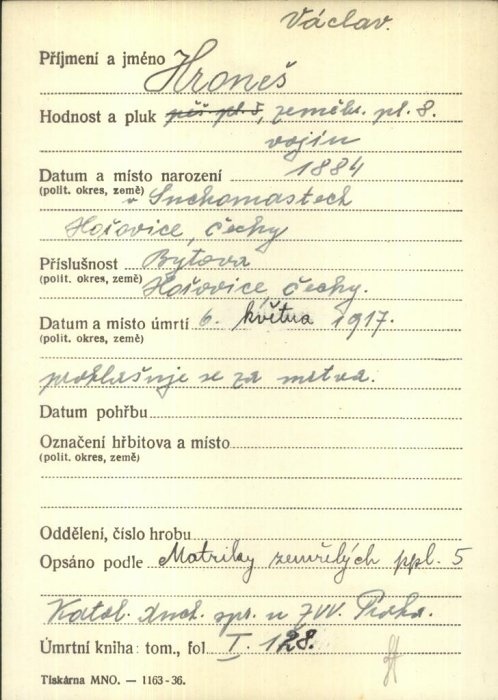 Václav.
Příjmení a jméno Hroneš
Hodnost a pluk pěš pl. 8, zeměbr. pl. 8.
vojín
Datum a místo narození 1884
(polit. okres, země) v Suchomastech
Hořovice, Čechy
Příslušnost Bytova
(polit. okres, země) Hořovice, Čechy.
Datum a místo úmrtí 6. května 1917.
(polit. okres, země)
prohlašuje se za mrtva.
Datum pohřbu
Označení hřbitova a místo
(polit. okres, země)
Oddělení, číslo hrobu
Opsáno podle Matriky zemřelých ppl. 5
Katol. duch. spr. u ZVV. Praha.
Úmrtní kniha: tom., fol I. 128.
Tiskárna MNO. — 1163-36.